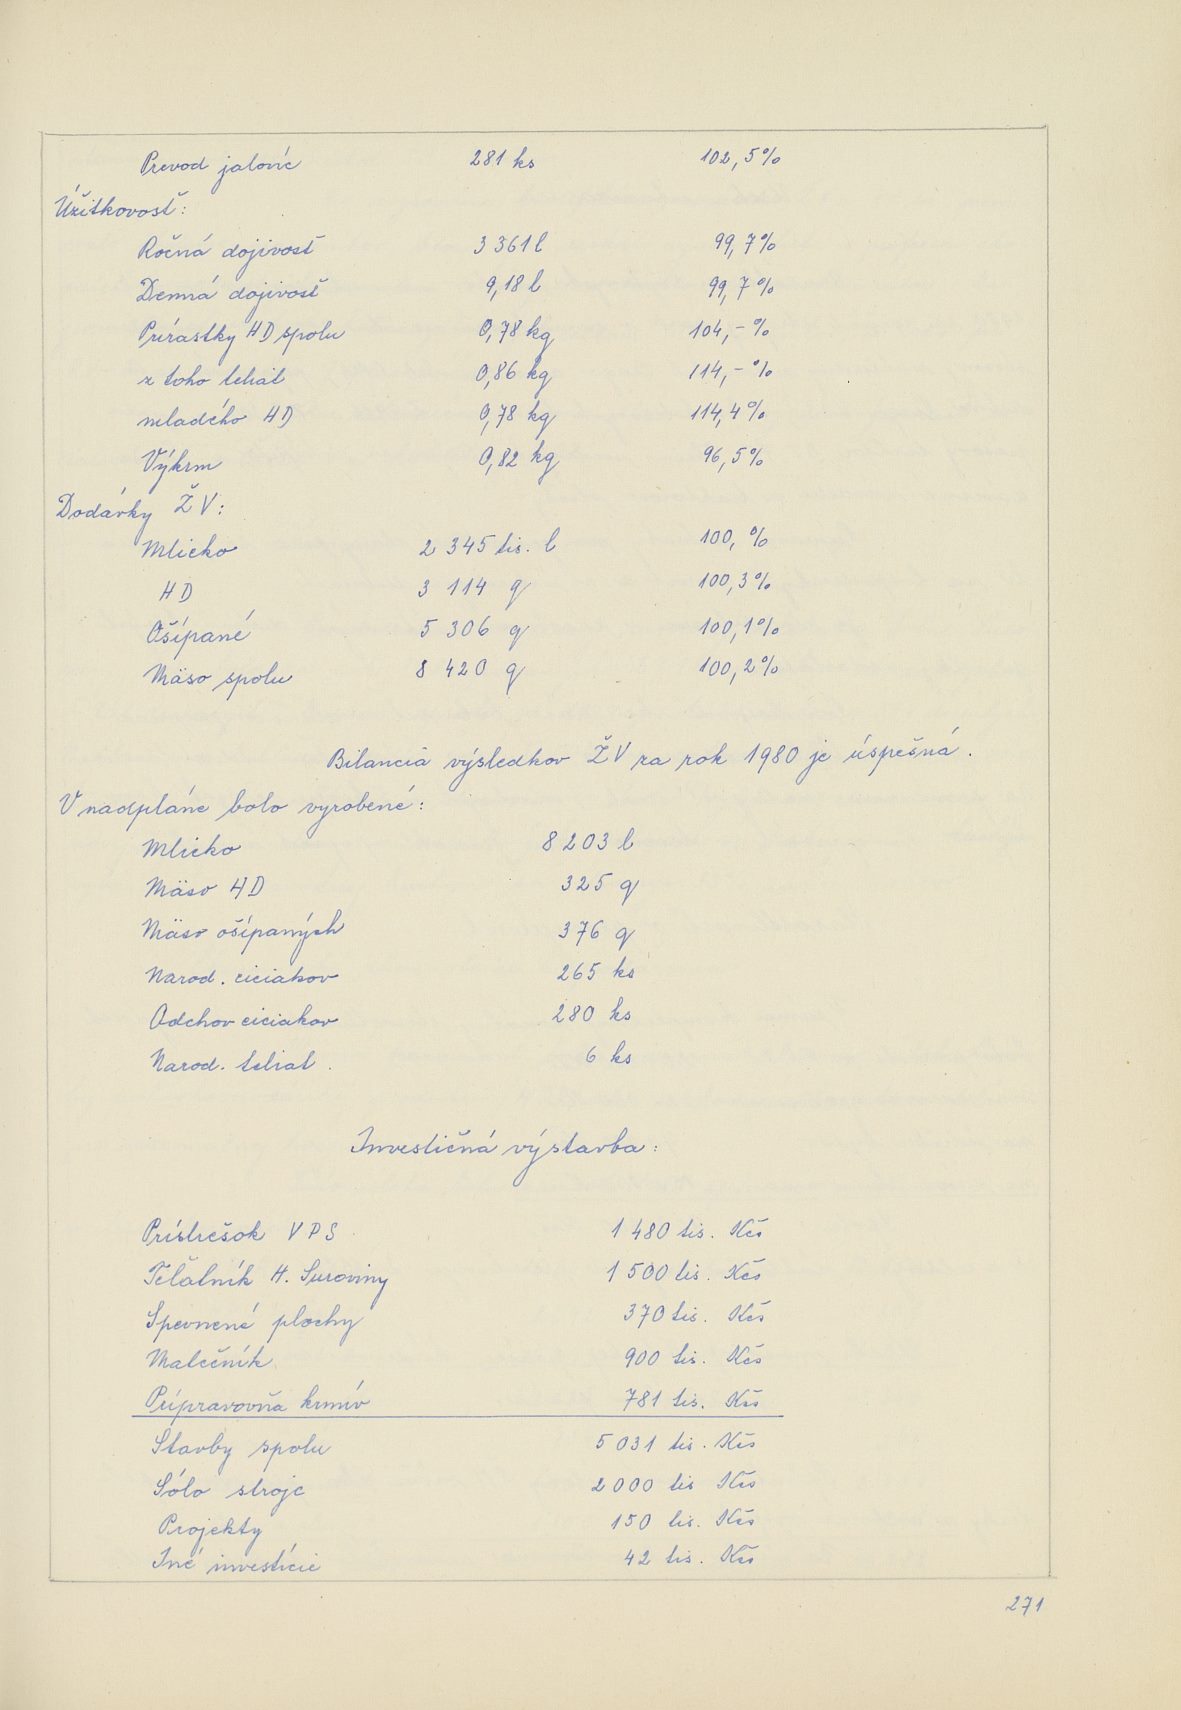 Prevod jalovíc 281 ks 102,5%
Úžitkovosť:
Ročná dojivosť 3 361 l 99,7%
Denná dojivosť 9,18 l 99,7%
Prírastky HD spolu 0,78 kg 104,-%
z toho teliat 0,86 kg 114,-%
mladého HD 0,78 kg 114,4%
Výkrm 0,82 kg 96,5%
Dodávky ŽV:
Mlieko 2 345 tis. l 100,%
HD 3 114 q 100,3%
Ošípané 5 306 q 100,1%
Mäso spolu 8 420 q 100,2%
Bilancia výsledkov ŽV za rok 1980 je úspešná.
V nadpláne bolo vyrobené:
Mlieko 8 203 l
Mäso HD 325 q
Mäso ošípaných 376 q
Narod. ciciakov 265 ks
Odchov ciciakov 280 ks
Narod. teliat. 6 ks
Investičná výstavba:
Prístrešok VPS 1 480 tis. Kčs
Teľatník H. Suroviny 1 500 tis. Kčs
Spevnené plochy 370 tis. Kčs
Matečník 900 tis. Kčs
Prípravovňa krmív 781 tis. Kčs
Stavby spolu 5 031 tis. Kčs
Sólo stroje 2 000 tis Kčs
Projekty 150 tis. Kčs
Iné investície 42 tis. Kčs
271